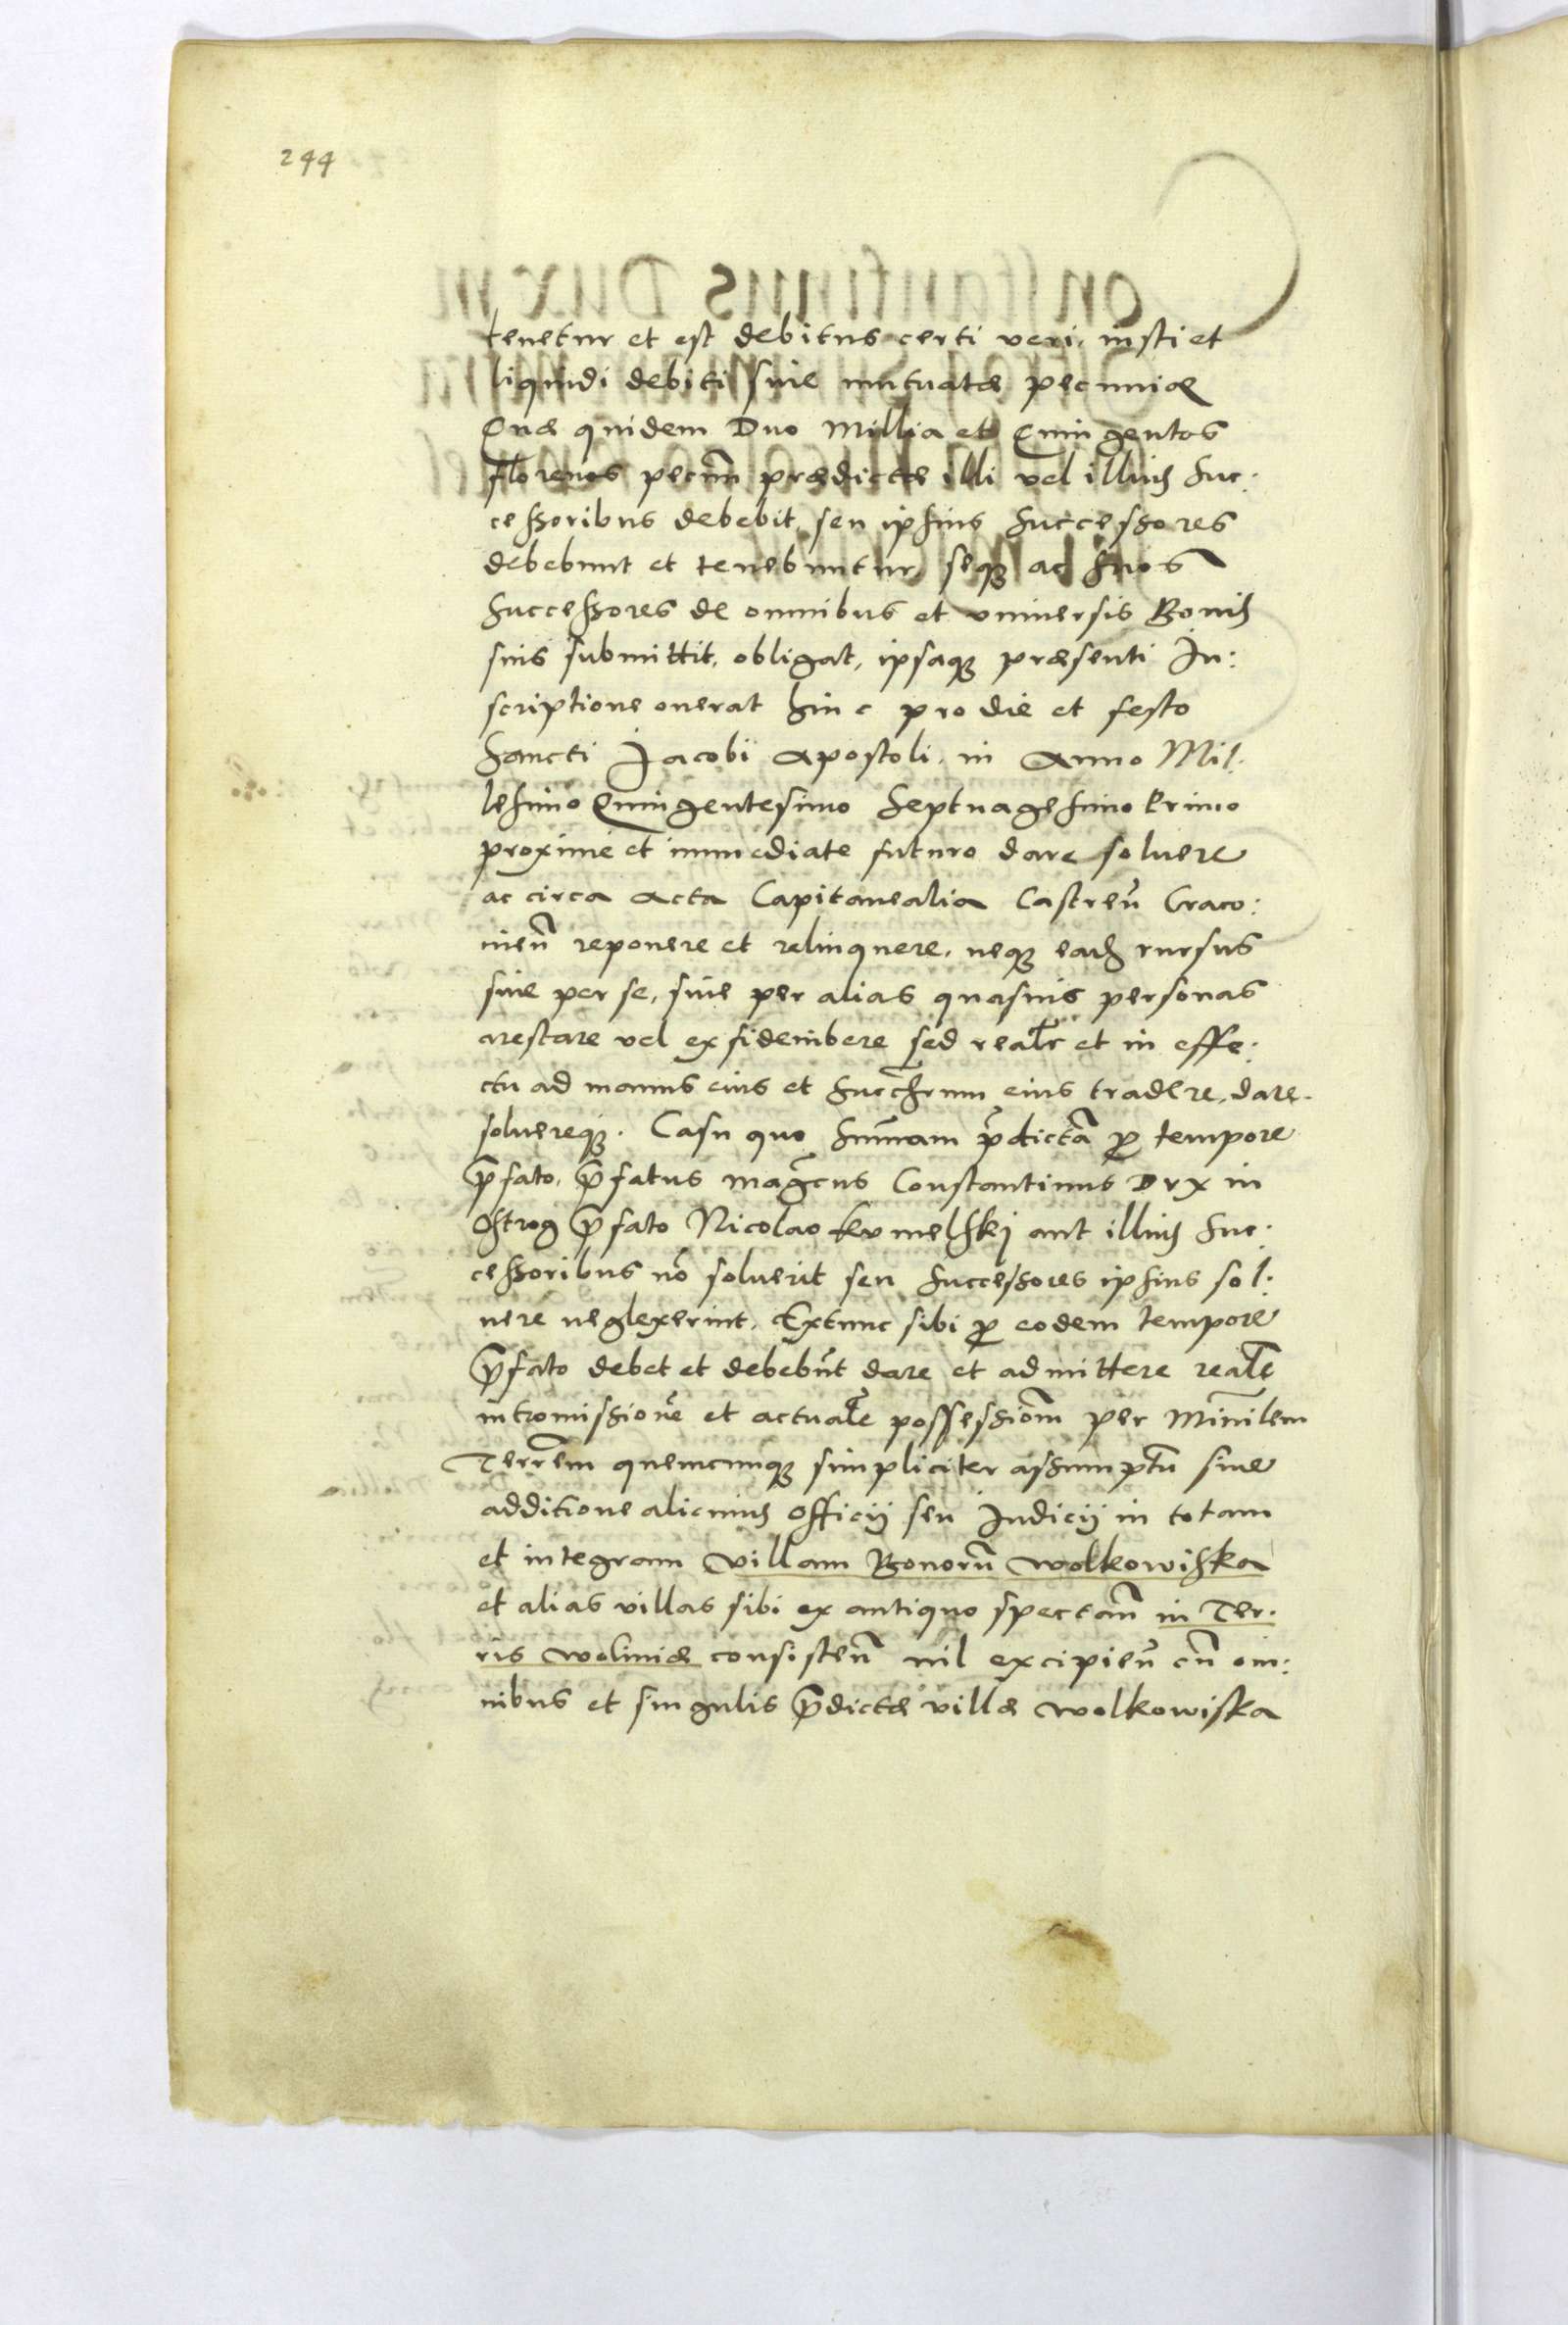 244
tenetur et est debitus certi veri, iusti et
liquidi debiti siue mutuatæ pecuniæ
Quæ quidem Duo Millia et Quingentos
florenos pecun̄ prædictæ illi vel illius Suc:
cessoribus debebit, seu ipsius Successores
debebunt et tenebuntur, seq₃ ac suos
Successores de omnibus et vniuersis Bonis
suis submittit, obligat, ipsaq₃ præsenti In:
scriptione onerat hinc pro die et festo
Sancti Jacobi Apostoli, in Anno Mil:
lesimo Quingentesimo Septuagesimo Primo
proxime et immediate futuro dare soluere
ac circa Acta Capitanealia Castren̄ Craco:
uien̄ reponere et relinquere, neq₃ eads rursus
siue per se, siue per alias quasuis personas
arestare vel exfideiubere sed realr̄ et in effe:
ctu ad manus eius et Succr̄um eius tradere, dare.
soluereq₃. Casu quo Sum̄am p̄dictā p̱ tempore
p̄fato, p̄fatus mag̃cus Constantinus Dux in
Ostrog p̄fato Nicolao Kumelskj aut illius Suc:
cessoribus nō soluerit seu Successores ipsius sol:
uere neglexerint, Extunc sibi p̱ eodem tempore
p̄fato debet et debebūt dare et admittere realē
intromissionē et actualē possessiom̄ per Min̄ilem
Terr̄em quemcunq₃ simpliciter assumptū siue
additione alicuius Officij seu Judicij in totam
et integram villam Bonorū Wolkowiska
et alias villas sibi ex antiquo spectan̄ in Ter:
ris Woliniæ consisten̄ nil excipien̄ cū om:
nibus et singulis p̄dictæ villæ Wolkowiska